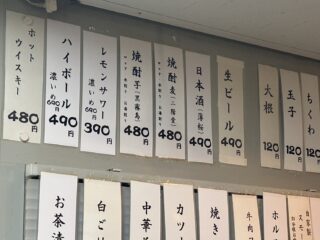 ホットウイスキー
480円
ハイボール
濃いめ690円
490円
レモンサワー
濃いめ590円
390円
焼酎 芋(黒霧島)
480円
焼酎 麦(二階堂)
480円
日本酒(澤松)
490円
生ビール
490円
大根
120円
玉子
120円
ちくわ
120円
お茶漬
白ご
中華
カツ
焼き
牛肉
ホル
自家製
スモー